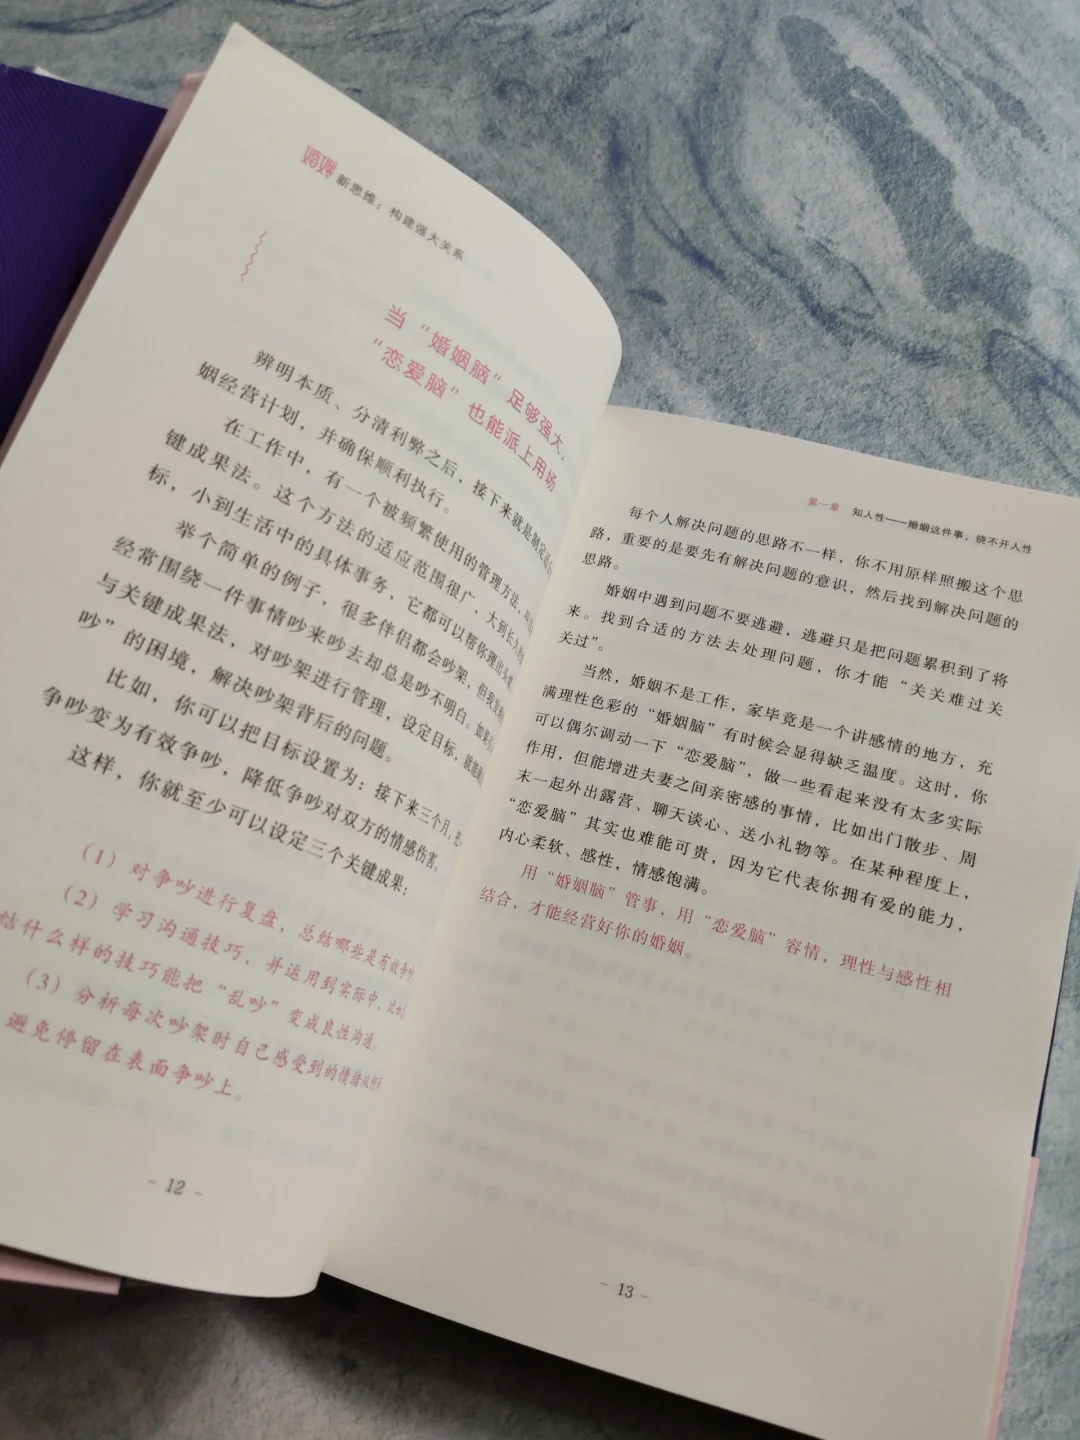 婚姻 新思维：构建强大关系
当“婚姻脑”足够强大，
“恋爱脑”也能派上用场
辨明本质、分清利弊之后，接下来就是制定
姻经营计划，并确保顺利执行。
在工作中，有一个被频繁使用的管理方法，
键成果法。这个方法的适应范围很广，大到长久的
标，小到生活中的具体事务，它都可以帮你理出头绪
举个简单的例子，很多伴侣都会吵架，但我发现
经常围绕一件事情吵来吵去却总是吵不明白。如果
与关键成果法，对吵架进行管理，设定目标，就能
吵”的困境，解决吵架背后的问题。
比如，你可以把目标设置为：接下来三个月，
争吵变为有效争吵，降低争吵对双方的情感伤害。
这样，你就至少可以设定三个关键成果：
（1）对争吵进行复盘，总结哪些是有效争吵
（2）学习沟通技巧，并运用到实际中，
结什么样的技巧能把“乱吵”变成良性沟通。
（3）分析每次吵架时自己感受到的情绪
避免停留在表面争吵上。
- 12 -
第一章 知人性——婚姻这件事，绕不开人性
每个人解决问题的思路不一样，你不用原样照搬这个思
路，重要的是要先有解决问题的意识，然后找到解决问题的
思路。
婚姻中遇到问题不要逃避，逃避只是把问题累积到了将
来。找到合适的方法去处理问题，你才能“关关难过关
关过”。
当然，婚姻不是工作，家毕竟是一个讲感情的地方，充
满理性色彩的“婚姻脑”有时候会显得缺乏温度。这时，你
可以偶尔调动一下“恋爱脑”，做一些看起来没有太多实际
作用，但能增进夫妻之间亲密感的事情，比如出门散步、周
末一起外出露营、聊天谈心、送小礼物等。在某种程度上，
“恋爱脑”其实也难能可贵，因为它代表你拥有爱的能力，
内心柔软、感性，情感饱满。
用“婚姻脑”管事，用“恋爱脑”容情，理性与感性相
结合，才能经营好你的婚姻。
- 13 -